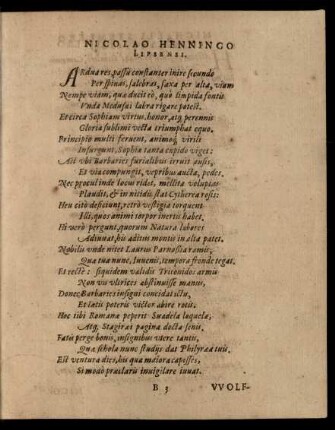 NICOLAO HENNINGO
LIPENSI.
ARdua res, passu constanter inire secundo
Per spinas, salebras, saxa per alta, viam
Nempe viam, quæ ducit eò, quò limpida fontis
Vnda Medusæi labra rigare potest.
Et circa Sophiam virtus, honor, atq; perennis
Gloria sublimi vecta triumphat equo.
Principio multi feruent, animoq; virili
Insurgunt, Sophiæ tanta cupido viget:
Ast vbi Barbaries furialibus irruit ausis,
Et via compungit, vepribus aucta, pedes,
Nec procul inde locus ridet, mellita voluptas
Plaudit, & in nitidis stat Cytherea rosis:
Heu citò deficiunt, retrò vestigia torquent
Illi, quos animi torpor inertis habet.
Hi verò pergunt, quorum Natura labores
Adiuuat, his aditus montis in alta patet.
Nobilis vnde nitet Laurus Parnassia ramis,
Quæ tua nunc, Iuuenis, tempora fronde tegat.
Et rectè: siquidem validis Tritonidos armis
Non vis vltrices abstinuisse manus,
Donec Barbaries insigni concidat ictu,
Et lætis poteris victor abire rotis.
Hoc tibi Romanæ peperit Suadela loquelæ,
Atq; Stagiræi pagina docta senis.
Fatis perge bonis, insignibus vtere tantis,
Quæ schola nunc studijs dat Philyræa tuis.
Est ventura dies, his quæ maiora capesses,
Si modò præclaris inuigilare iuuat.
B 3 VVOLF-